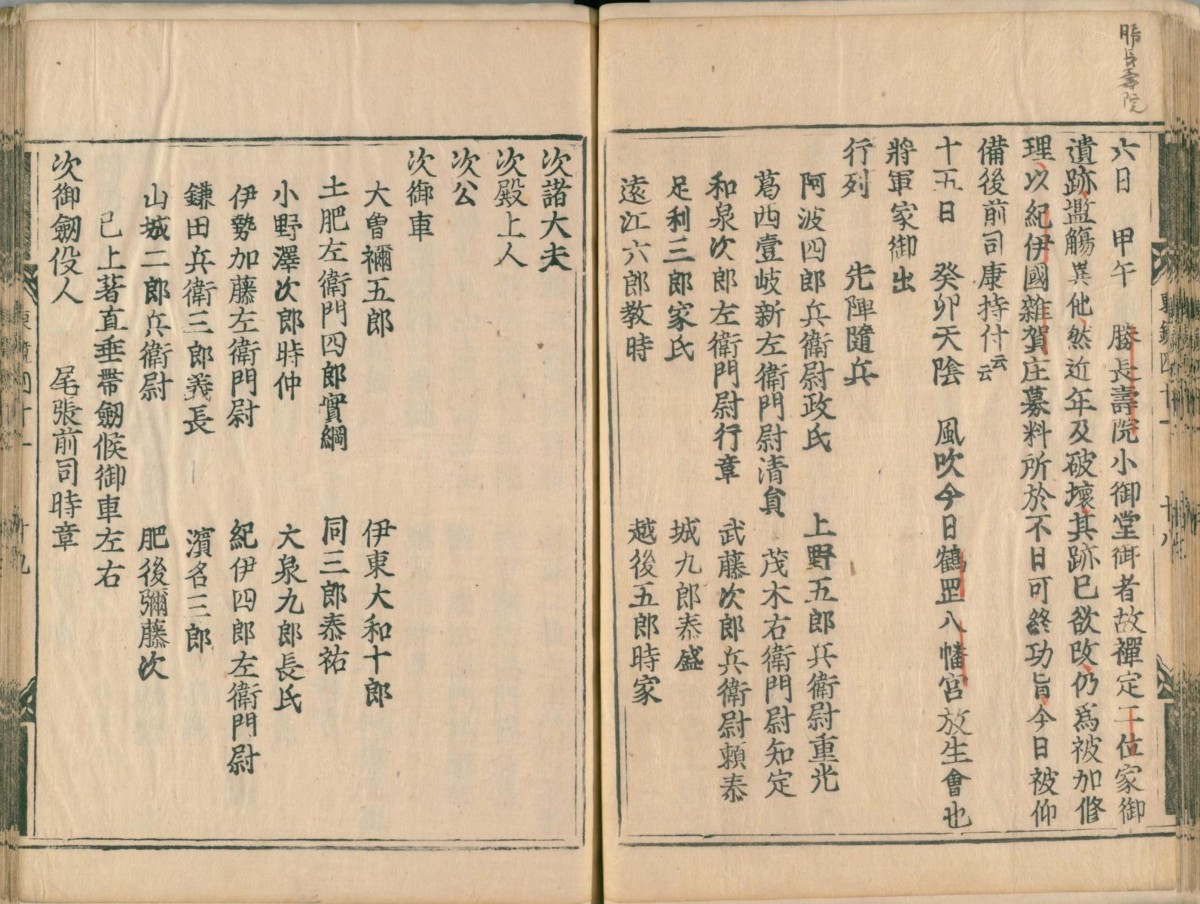 勝長壽院
六日　甲午　勝長壽院小御堂御者故禪定二位家御
遺跡濫觴異他然近年及破壞其跡已欲改仍爲被加修
理以紀伊國雜賀庄募料所於不日可終功旨今日被仰
備後前司康持付云云
十五日　癸卯天陰　風吹今日鶴罡八幡宮放生會也
將軍家御出
行列　先陣隨兵
阿波四郎兵衛尉政氏　上野五郎兵衛尉重光
葛西壹岐新左衛門尉清貟　茂木右衛門尉知定
和泉次郎左衛門尉行章　武藤次郎兵衛尉頼泰
足利三郎家氏　城九郎泰盛
遠江六郎教時　越後五郎時家
次諸大夫
次殿上人
次公
次御車
大曽禰五郎　伊東大和十郎
土肥左衛門四郎實綱　同三郎泰祐
小野澤次郎時仲　大泉九郎長氏
伊勢加藤左衛門尉　紀伊四郎左衛門尉
鎌田兵衛三郎義長　濱名三郎
山城二郎兵衛尉　肥後彌藤次
已上著直垂帶劔候御車左右
次御劔役人　尾張前司時章